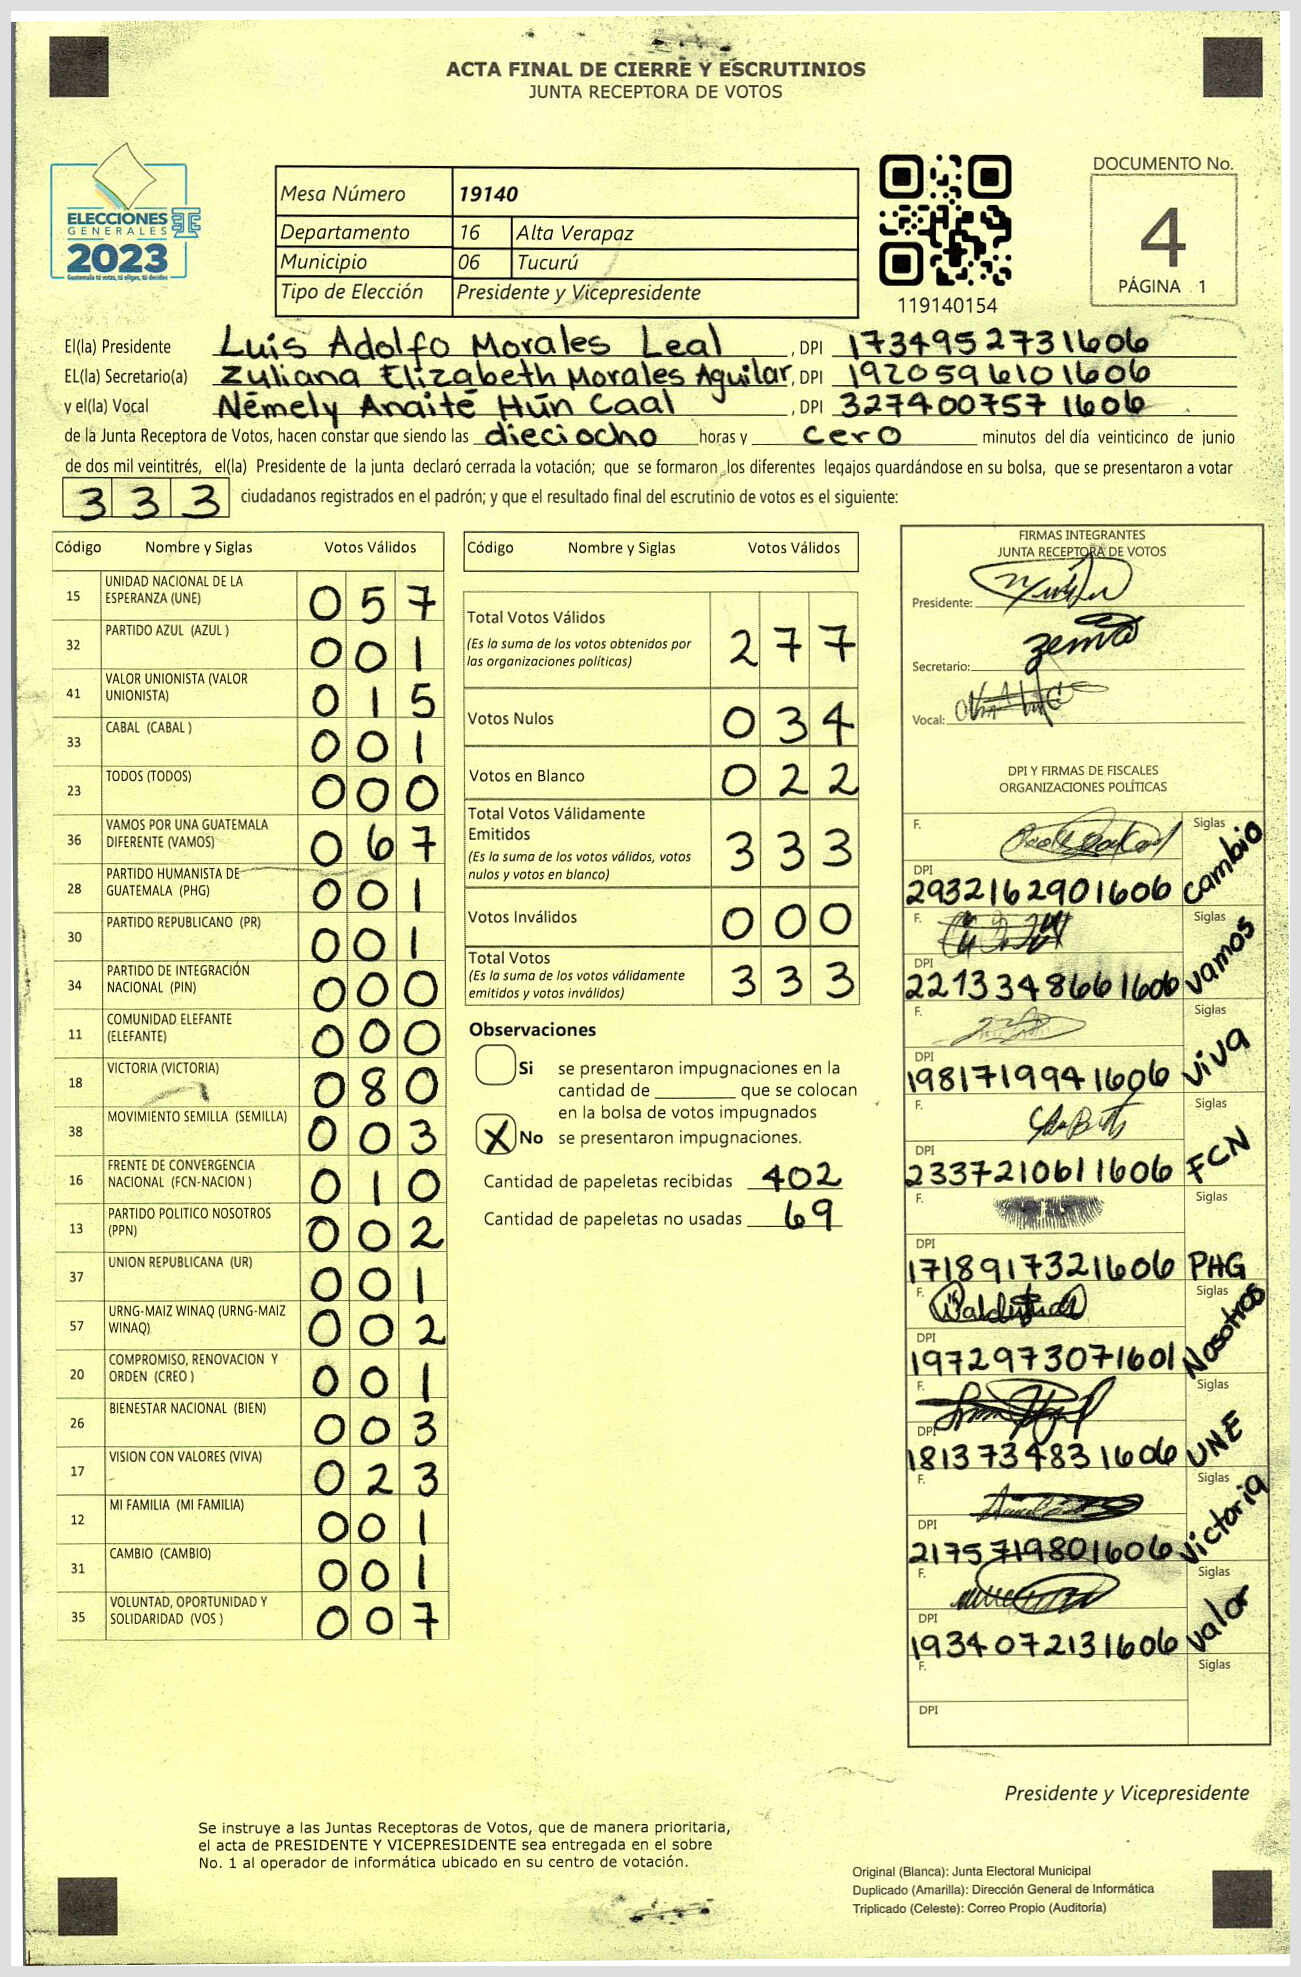 ACTA FINAL DE CIERRE Y ESCRUTINIOS
JUNTA RECEPTORA DE VOTOS
ELECCIONES
GENERALES
2023
Guatemala tú votas, tú eliges, tú decides
Mesa Número 19140
Departamento 16 Alta Verapaz
Municipio 06 Tucurú
Tipo de Elección Presidente y Vicepresidente
119140154
DOCUMENTO No.
4
PÁGINA 1
El(la) Presidente Luis Adolfo Morales Leal, DPI 1734952731606
EL(la) Secretario(a) Zuliana Elizabeth Morales Aguilar, DPI 1920596101606
y el(la) Vocal Némely Anaité Hún Caal, DPI 3274007571606
de la Junta Receptora de Votos, hacen constar que siendo las dieciocho horas y cero minutos del día veinticinco de junio
de dos mil veintitrés, el(la) Presidente de la junta declaró cerrada la votación; que se formaron los diferentes legajos guardándose en su bolsa, que se presentaron a votar
333 ciudadanos registrados en el padrón; y que el resultado final del escrutinio de votos es el siguiente:
Código Nombre y Siglas Votos Válidos
15 UNIDAD NACIONAL DE LA ESPERANZA (UNE) 057
32 PARTIDO AZUL (AZUL ) 001
41 VALOR UNIONISTA (VALOR UNIONISTA) 015
33 CABAL (CABAL ) 001
23 TODOS (TODOS) 000
36 VAMOS POR UNA GUATEMALA DIFERENTE (VAMOS) 067
28 PARTIDO HUMANISTA DE GUATEMALA (PHG) 001
30 PARTIDO REPUBLICANO (PR) 001
34 PARTIDO DE INTEGRACIÓN NACIONAL (PIN) 000
11 COMUNIDAD ELEFANTE (ELEFANTE) 000
18 VICTORIA (VICTORIA) 080
38 MOVIMIENTO SEMILLA (SEMILLA) 003
16 FRENTE DE CONVERGENCIA NACIONAL (FCN-NACION ) 010
13 PARTIDO POLITICO NOSOTROS (PPN) 002
37 UNION REPUBLICANA (UR) 001
57 URNG-MAIZ WINAQ (URNG-MAIZ WINAQ) 002
20 COMPROMISO, RENOVACION Y ORDEN (CREO ) 001
26 BIENESTAR NACIONAL (BIEN) 003
17 VISION CON VALORES (VIVA) 023
12 MI FAMILIA (MI FAMILIA) 001
31 CAMBIO (CAMBIO) 001
35 VOLUNTAD, OPORTUNIDAD Y SOLIDARIDAD (VOS ) 007
Código Nombre y Siglas Votos Válidos
Total Votos Válidos 277
(Es la suma de los votos obtenidos por
las organizaciones políticas)
Votos Nulos 034
Votos en Blanco 022
Total Votos Válidamente
Emitidos 333
(Es la suma de los votos válidos, votos
nulos y votos en blanco)
Votos Inválidos 000
Total Votos 333
(Es la suma de los votos válidamente
emitidos y votos inválidos)
Observaciones
Si se presentaron impugnaciones en la
cantidad de ________ que se colocan
en la bolsa de votos impugnados
X No se presentaron impugnaciones.
Cantidad de papeletas recibidas 402
Cantidad de papeletas no usadas 69
FIRMAS INTEGRANTES
JUNTA RECEPTORA DE VOTOS
Presidente:
Secretario:
Vocal:
DPI Y FIRMAS DE FISCALES
ORGANIZACIONES POLÍTICAS
F. Siglas
DPI
2932162901606 Cambio
F. Siglas
DPI
2213348661606 Vamos
F. Siglas
DPI
1981719941606 Viva
F. Siglas
DPI
2337210611606 FCN
F. Siglas
DPI
1718917321606 PHG
F. Siglas
DPI
1972973071601 Nosotros
F. Siglas
DPI
1813734831606 UNE
F. Siglas
DPI
2175719801606 Victoria
F. Siglas
DPI
1934072131606 Valor
F. Siglas
DPI
Presidente y Vicepresidente
Se instruye a las Juntas Receptoras de Votos, que de manera prioritaria,
el acta de PRESIDENTE Y VICEPRESIDENTE sea entregada en el sobre
No. 1 al operador de informática ubicado en su centro de votación.
Original (Blanca): Junta Electoral Municipal
Duplicado (Amarilla): Dirección General de Informática
Triplicado (Celeste): Correo Propio (Auditoría)